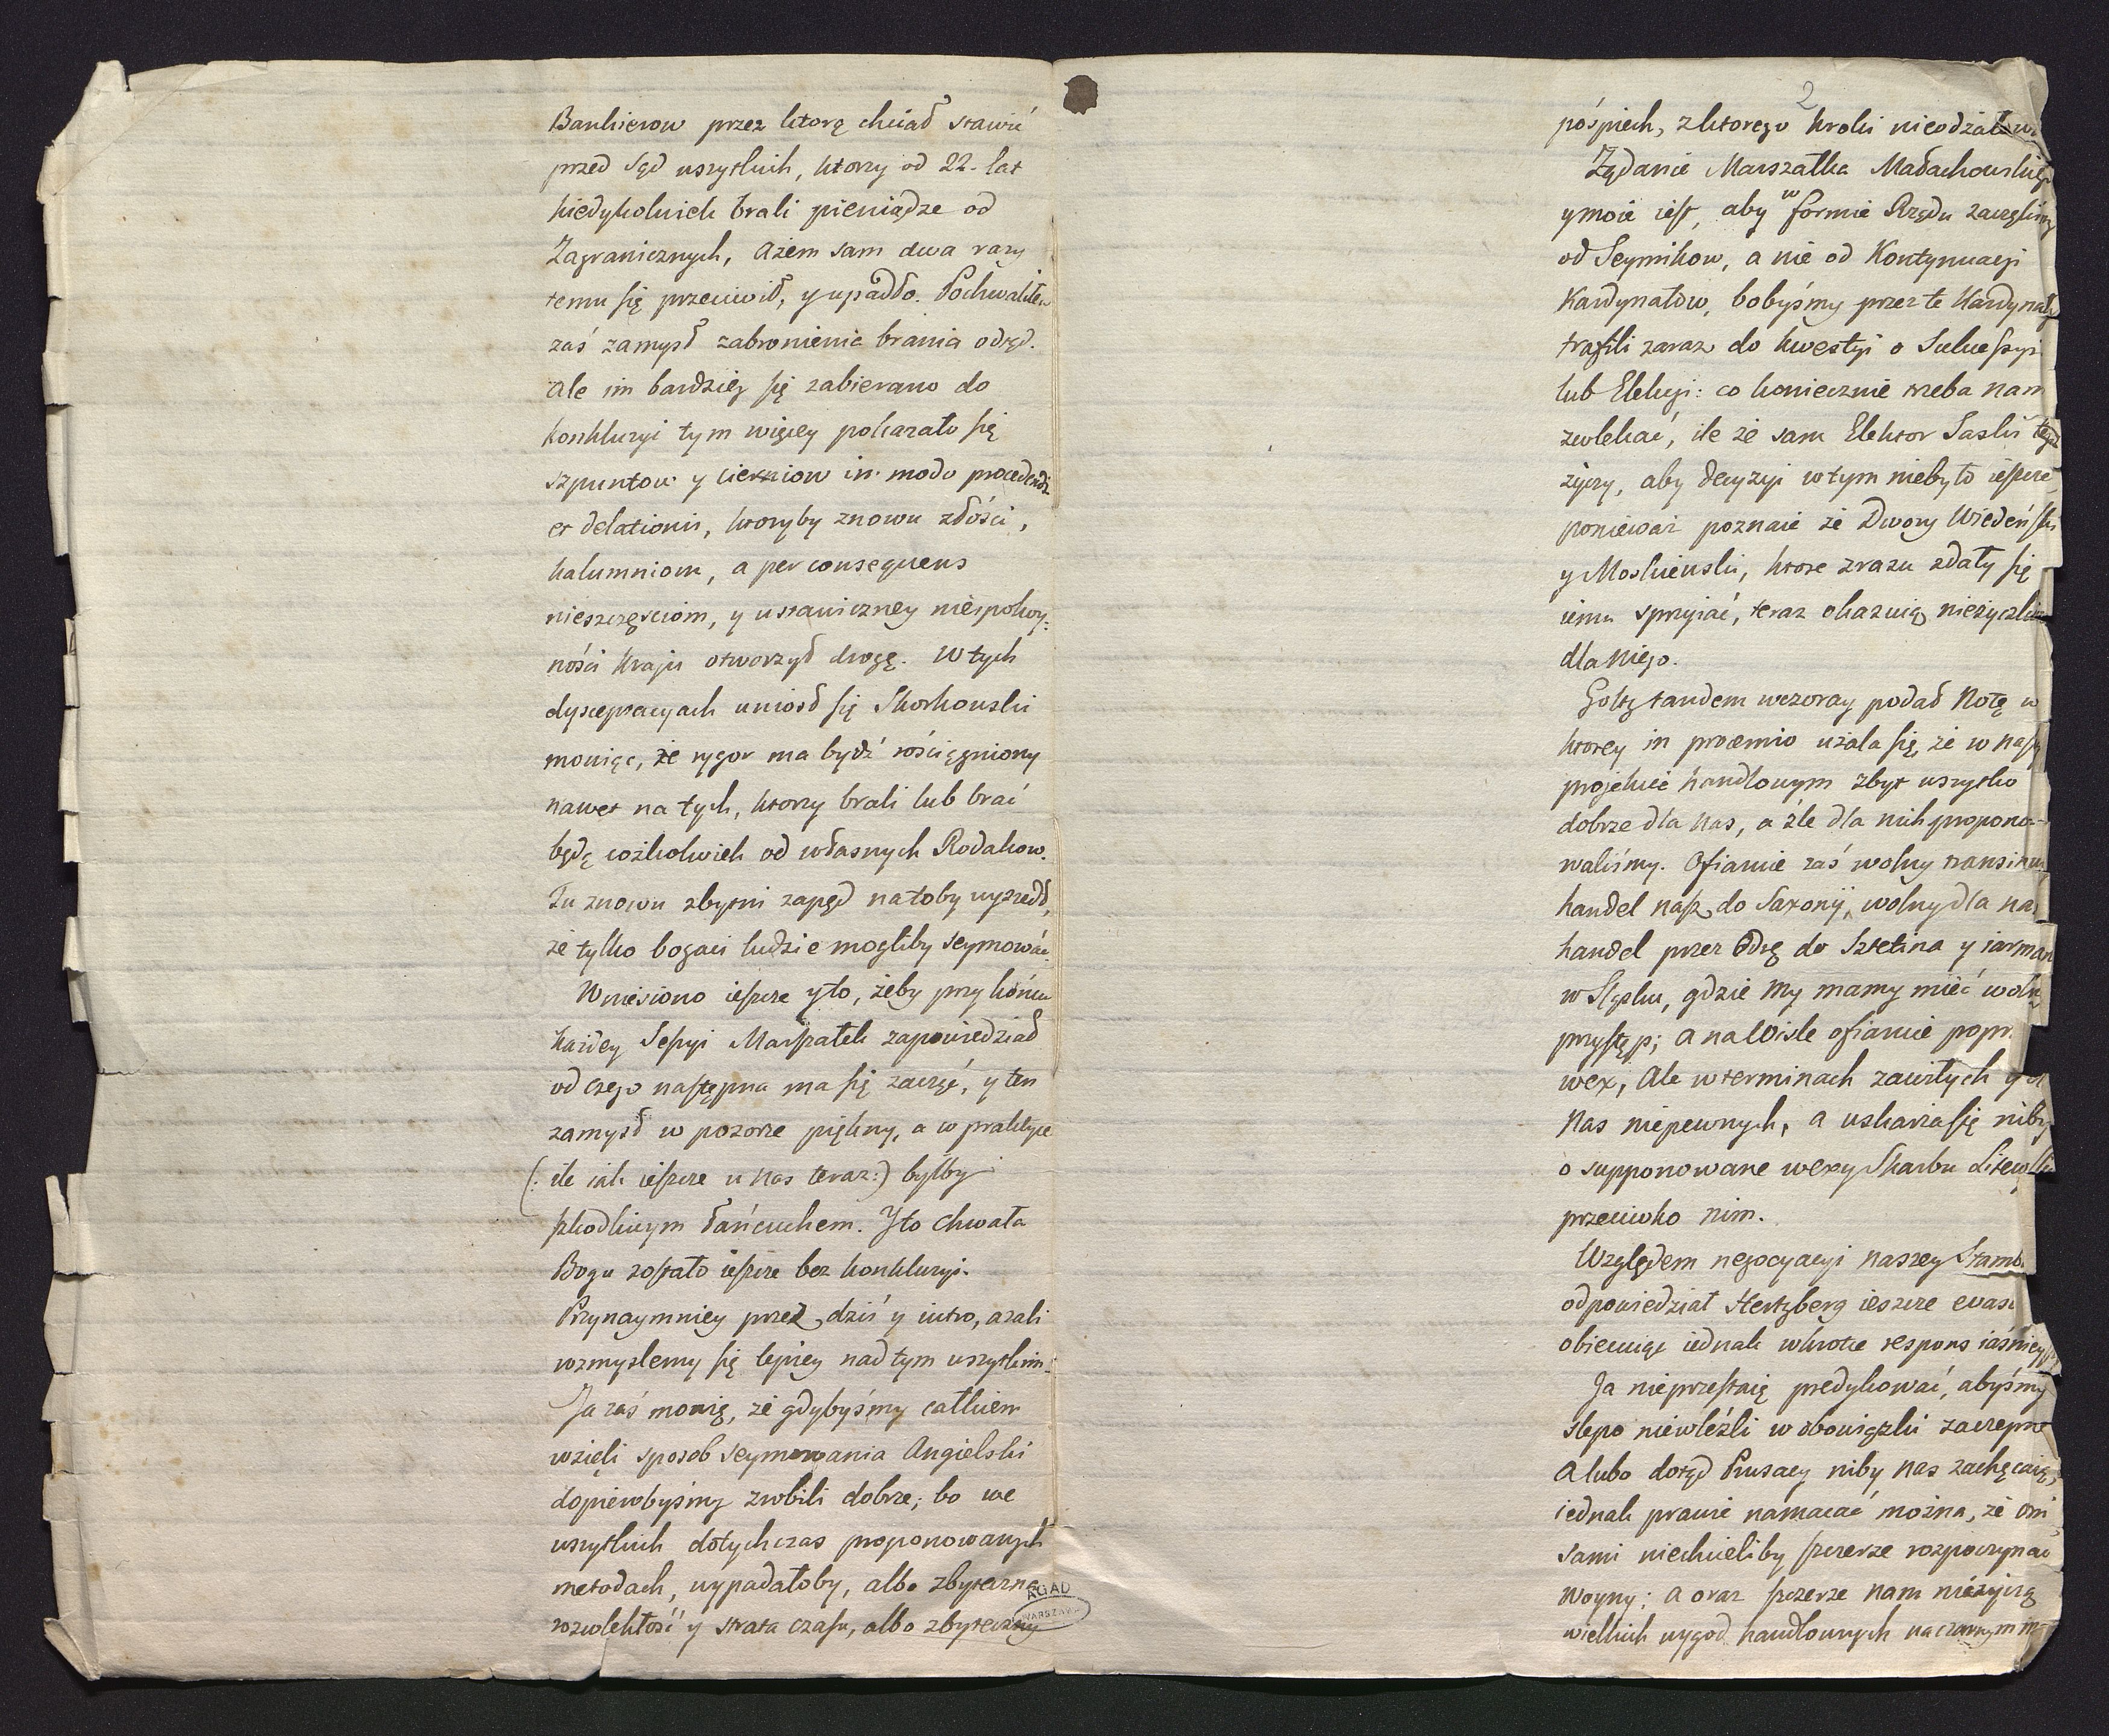 Bankierow przez ktorą chciał stawić
przed Sąd wszystkich, ktorzy od 22. lat
kiedykolwiek brali pieniądze od
Zagranicznych, ażem sam dwa razy
temu się przeciwił, y upadło. Pochwaliłem
zaś zamysł zabronienia brania odtąd.
ale im bardziey się zabierano do
konkluzyi tym więcey pokazało się
szpuntow y cierniow in modo procedendi
et delationis, ktoryby znowu złości,
kalumniom, a per consequens
nieszczęściom, y ustawiczney niespokoy:
ności kraju otworzył drogę. W tych
dysceptacyach uniosł się Skorkowski
mowiąc, że rygor ma bydź rościągniony
nawet na tych, ktorzy brali lub brać
będą cożkolwiek od własnych Rodakow.
Tu znowu zbytni zapęd na toby wyszedł,
że tylko bogaci ludzie mogliby seymować.
Wniesiono ieszcze y to, żeby przy końcu
każdey Sessyi Marszałek zapowiedział
od czego następna ma się zacząć, y ten
zamysł w pozorze piękny, a w praktyce
(: ile iak ieszcze u nas teraz:) byłby
szkodliwym łańcuchem. Y to chwała
Bogu zostało ieszcze bez konkluzyi.
Przynaymniey przez dziś y iutro, azali
rozmyslemy się lepiey nad tym wszystkim.
Ja zaś mowię, że gdybyśmy całkiem
wzięli sposob seymowania Angielski
dopierobyśmy zrobili dobrze; bo we
wszystkich dotychczas proponowanych
metodach, wypadałoby, albo zbyteczna
rozwlekłość y strata czasu, albo zbyteczny
AGAD
WARSZAWA
2
pośpiech, z ktorego kroki nieodżałow
Żądanie Marszałka Małachowskiego
y moie iest, aby w formie Rządu zaczęliśmy
od Seymikow, a nie od Kontynuacyi
Kardynałow, bobyśmy przez te Kardynały
trafili zaraz do kwestyi o Sukcessyi
lub Elekcyi: co koniecznie trzeba nam
zwlekać, ile że sam Elektor Saski tego
życzy, aby decyzyi w tym niebyło ieszcze,
ponieważ poznaie że Dwory Wiedeński
y Moskiewski, ktore zrazu zdały się
iemu sprzyiać, teraz okazuią nieżyczliw
dla niego.
Goltz tandem wczoray podał Notę w
ktorey in proemio użala się, że w nasz
projekcie handlowym zbyt wszystko
dobrze dla nas, a źle dla nich propono-
waliśmy. Ofiaruie zaś wolny transit na
handel nasz do Saxonij, wolny dla nas
handel przez Odrę do Sztetina y iarmar
w Sląsku, gdzie my mamy mieć wolny
przystęp; a na Wisle ofiaruie popr
wex, ale w terminach zawiłych y dl
nas niepewnych, a uskarża się niby
o supponowane wexy Skarbu Litewski
przeciwko nim.
Względem negocyacyi naszey Stamb
odpowiedział Hertzberg ieszcze evasi
obiecuiąc iednak wkrotce respons iaśniey
Ja nieprzestaię predykować, abyśmy
slepo niewleźli w obowiązki zaczepne
Alubo dotąd Prusacy niby nas zachęcaią,
iednak prawie namacać można, że oni
sami niechcieliby szczerze rozpoczynać
woyny; a oraz szczerze nam nieżyczą
wielkich wygod handlowych na czarnym m